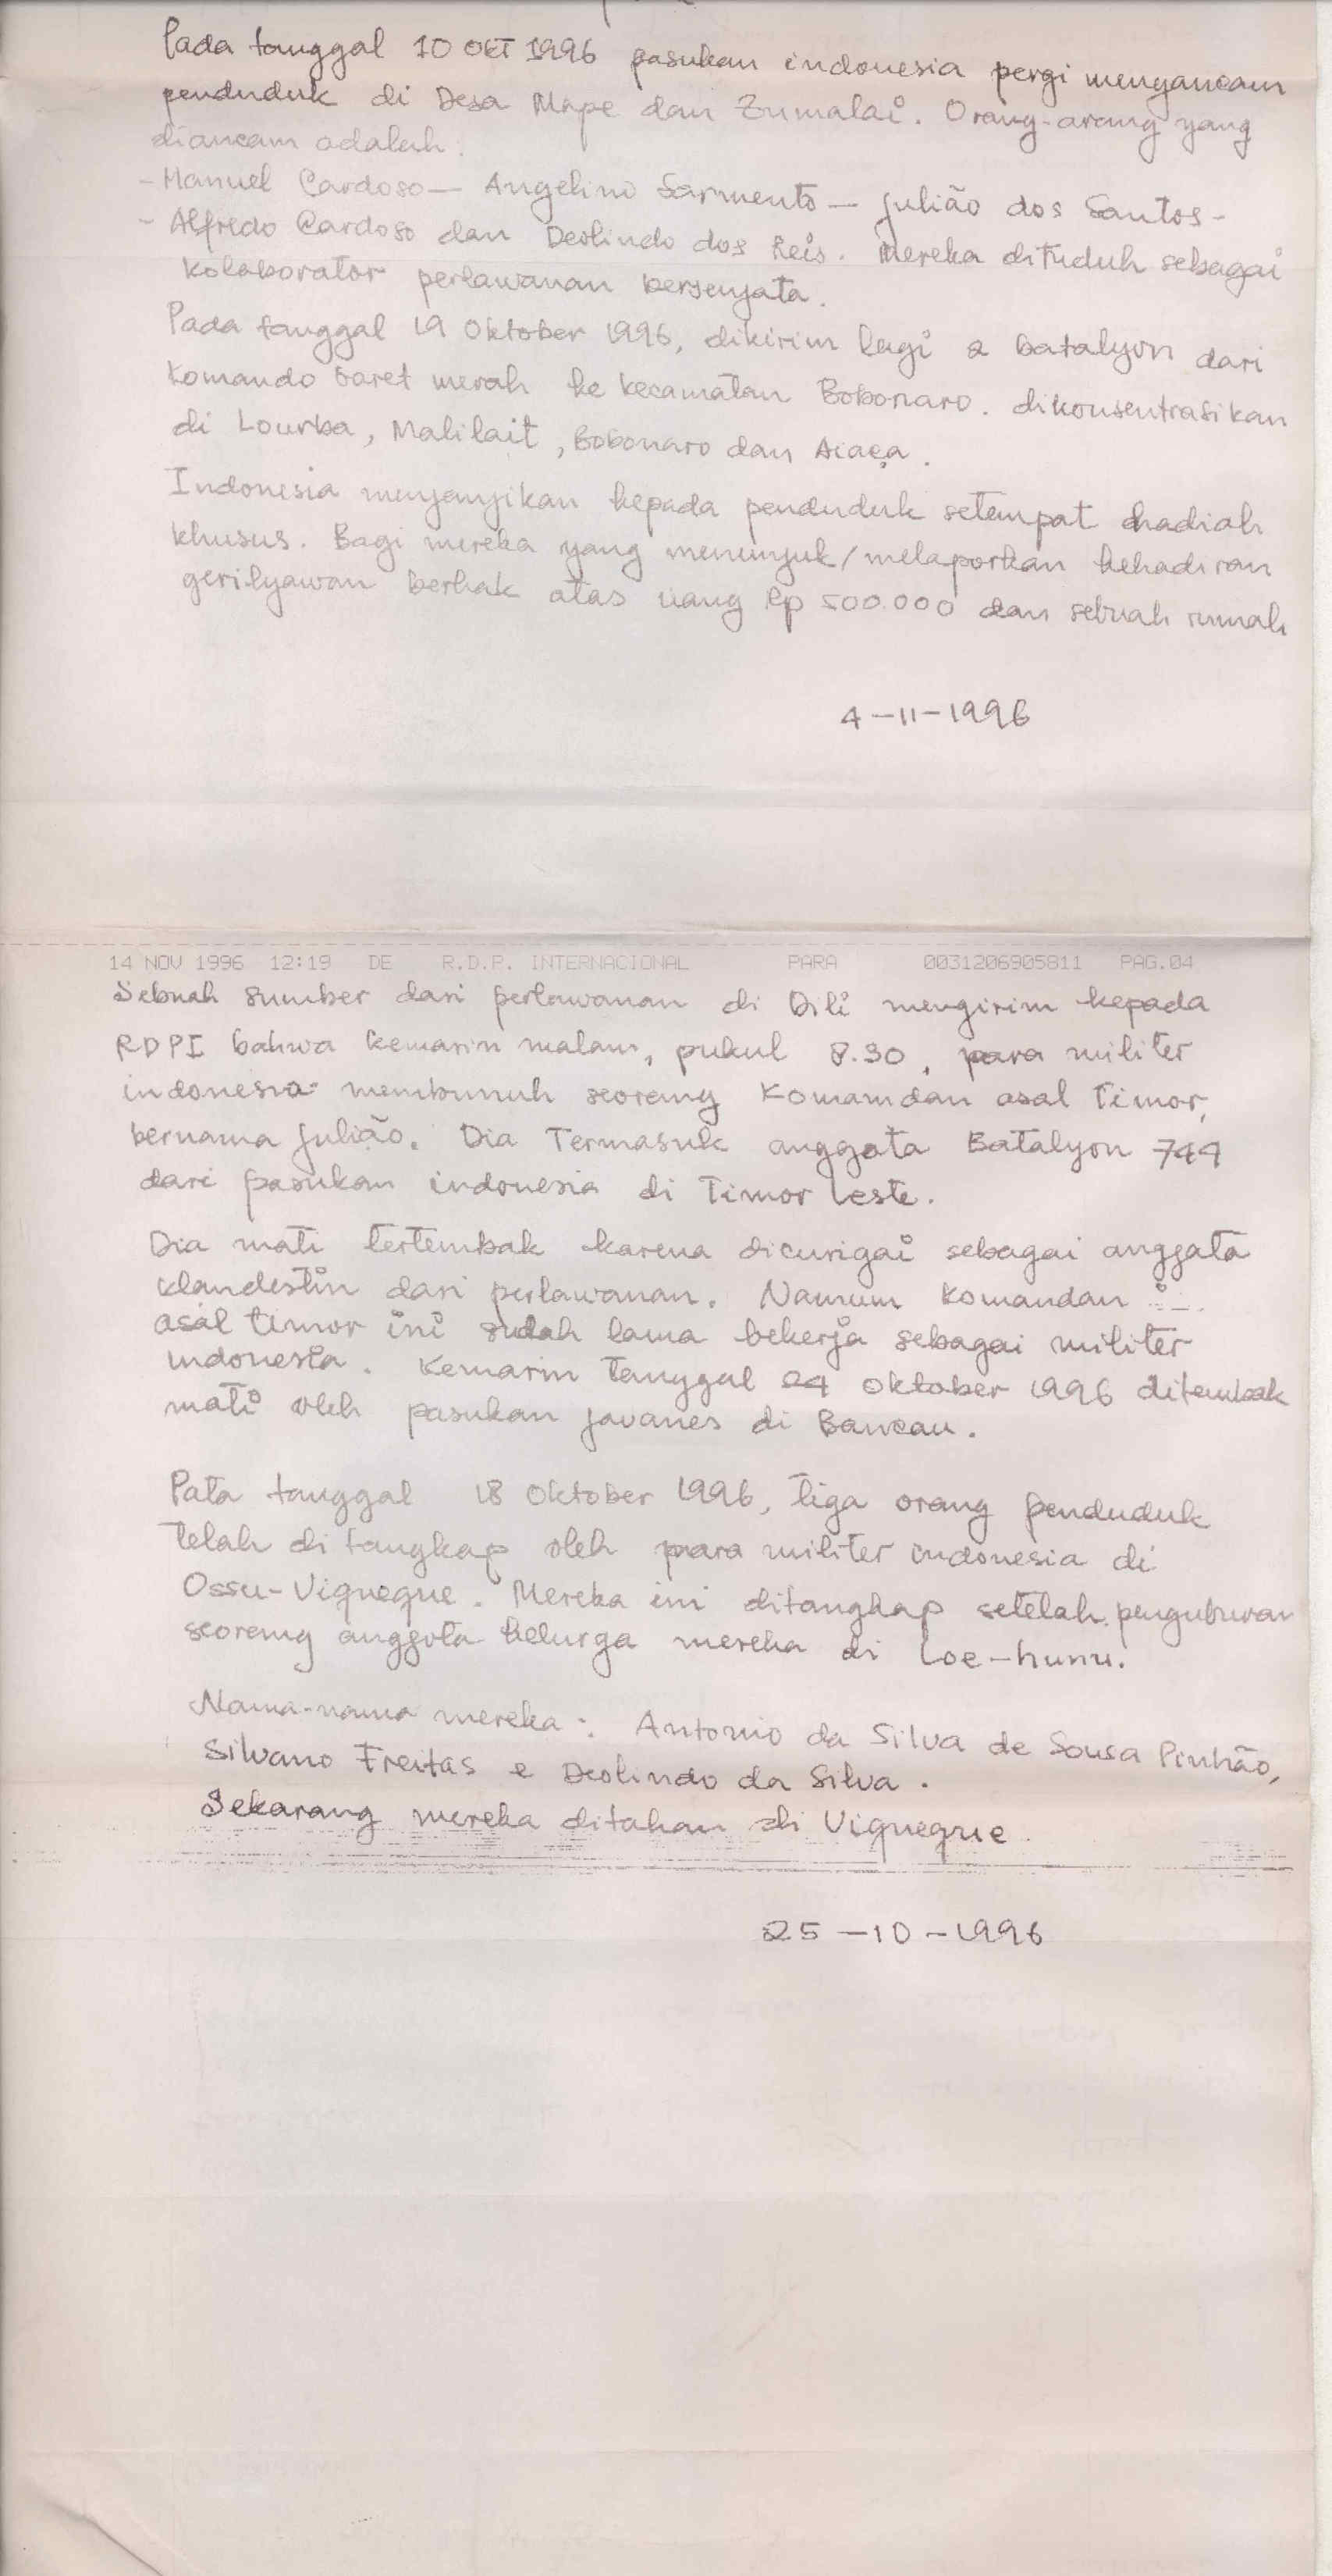 Pada tanggal 10 OKT 1996 pasukan indonesia pergi mengancam
penduduk di Desa Mape dan Zumalai. Orang-orang yang
diancam adalah.
- Manuel Cardoso - Angelino Sarmento - Julião dos Santos -
- Alfredo Cardoso dan Deolindo dos Reis. Mereka dituduh sebagai
kolaborator perlawanan bersenjata.
Pada tanggal 19 Oktober 1996, dikirim lagi 2 batalyon dari
Komando baret merah ke kecamatan Bobonaro. dikonsentrasikan
di Lourba, Malilait, Bobonaro dan
Indonesia menjanjikan kepada penduduk setempat hadiah
khusus. Bagi mereka yang menunjuk/melaporkan kehadiran
gerilyawan berhak atas uang Rp 500.000 dan sebuah rumah
4-11-1996
14 NOV 1996 12:19 DE R.D.P. INTERNACIONAL PARA 0031206905811 PAG.04
Sebuah sumber dari perlawanan di Dili mengirim kepada
RDPI bahwa kemarin malam, pukul 8.30, para militer
indonesia membunuh seorang Komamdan asal Timor,
bernama Julião. Dia Termasuk anggota Batalyon 744
dari pasukan indonesia di Timor Leste.
Dia mati tertembak karena dicurigai sebagai anggata
klandestin dari perlawanan. Namum Komandan
asal timor ini sudah lama bekerja sebagai militer
indonesia. Kemarin tanggal 24 Oktober 1996 ditembak
mati oleh pasukan javanes di Baucau.
Pata tanggal 18 Oktober 1996, tiga orang penduduk
telah di tangkap oleh para militer indonesia di
Ossu-Viqueque. Mereka ini ditangkap setelah penguburan
seorang anggota kelurga mereka di Loe-hunu.
Nama-nama mereka: Antonio da Silva de Sousa Pinhão,
Silvano Freitas e Deolindo da Silva.
Sekarang mereka ditahan di Viqueque
25-10-1996